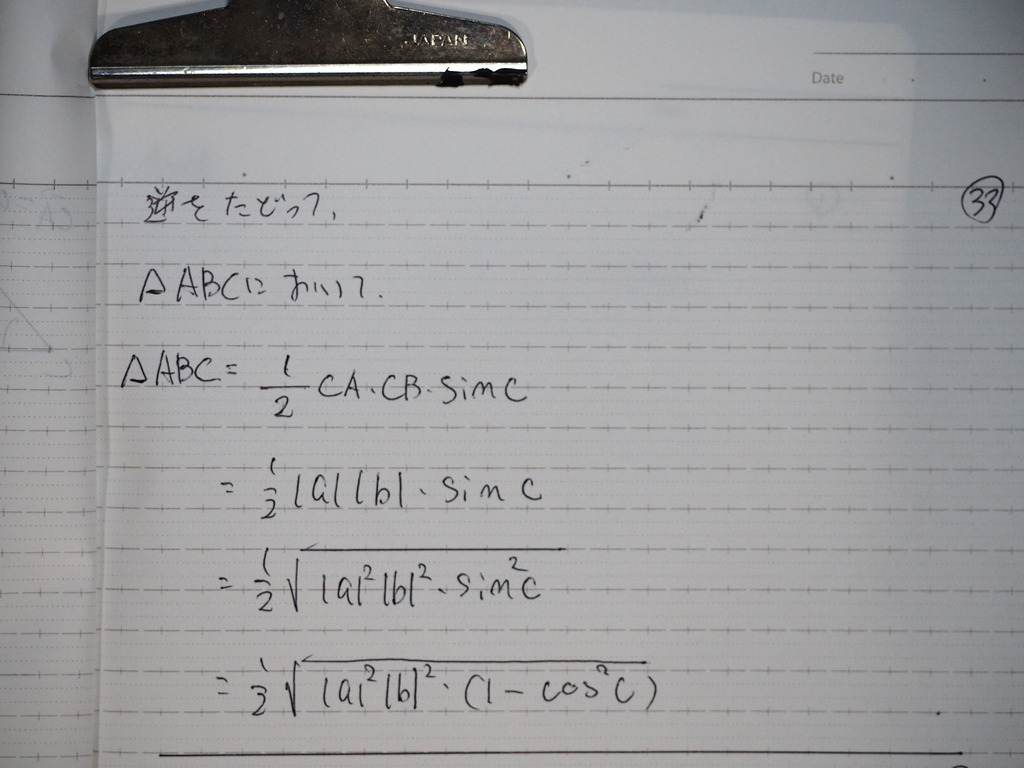 JAPAN
Date
㉝
逆をたどって,
△ABCにおいて.
△ABC = 1/2 CA・CB・sin C
= 1/2 |a||b|・sin C
= 1/2 √|a|²|b|²・sin²C
= 1/2 √|a|²|b|²・(1 - cos²C)